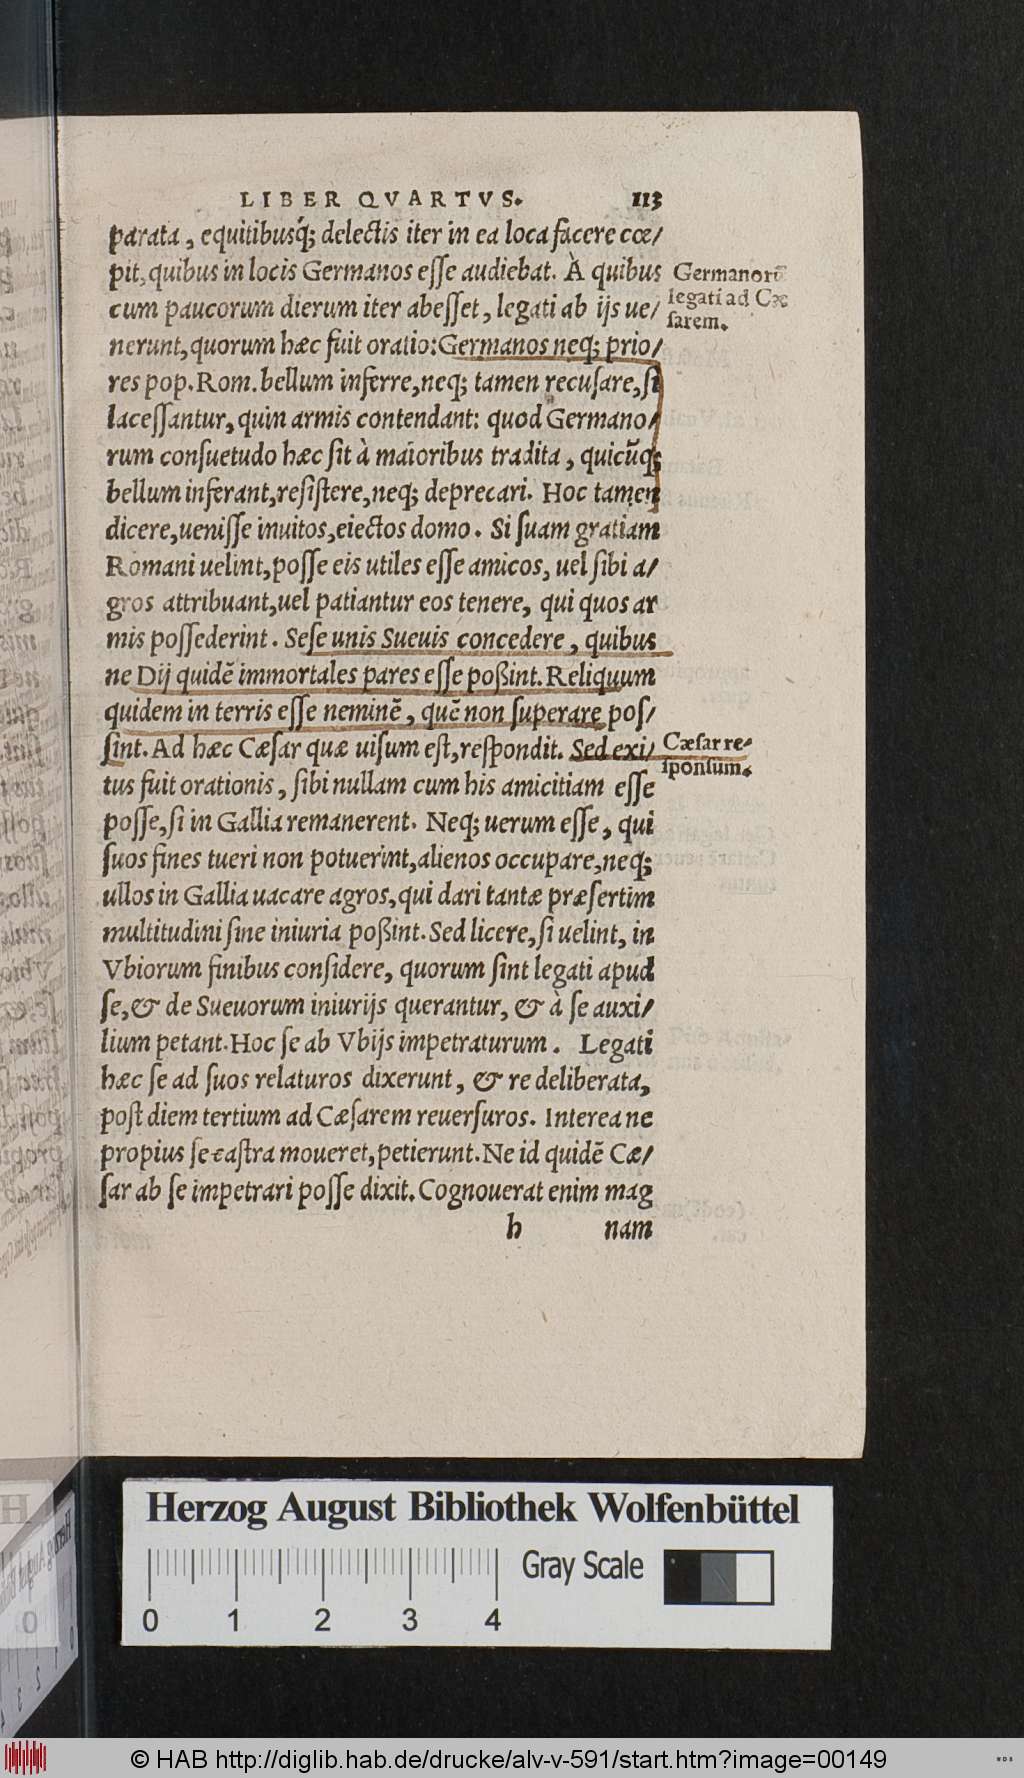 LIBER QVARTVS. 113
parata, equitibusq́; delectis iter in ea loca facere cœ/
pit, quibus in locis Germanos eſſe audiebat. À quibus
Germanorū
cum paucorum dierum iter abeſſet, legati ab ijs ue/
legati ad Cæ
sarem.
nerunt, quorum hæc fuit oratio: Germanos neq; prio/
res pop. Rom. bellum inferre, neq; tamen recuſare, ſi
laceſſantur, quin armis contendant: quod Germano/
rum conſuetudo hæc ſit à maioribus tradita, quicūq;
bellum inferant, reſiſtere, neq; deprecari. Hoc tamen
dicere, ueniſſe inuitos, eiectos domo. Si ſuam gratiam
Romani uelint, poſſe eis utiles eſſe amicos, uel ſibi a/
gros attribuant, uel patiantur eos tenere, qui quos ar
mis poſſederint. Seſe unis Sueuis concedere, quibus
ne Dij quidẽ immortales pares eſſe poßint. Reliquum
quidem in terris eſſe neminẽ, quẽ non ſuperare poſ/
ſint. Ad hæc Cæſar quæ uiſum eſt, reſpondit. Sed exi/
Cæſar re-
ſponſum.
tus fuit orationis, ſibi nullam cum his amicitiam eſſe
poſſe, ſi in Gallia remanerent. Neq; uerum eſſe, qui
ſuos fines tueri non potuerint, alienos occupare, neq;
ullos in Gallia uacare agros, qui dari tantæ præſertim
multitudini ſine iniuria poßint. Sed licere, ſi uelint, in
Vbiorum finibus conſidere, quorum ſint legati apud
ſe, & de Sueuorum iniurijs querantur, & à ſe auxi/
lium petant. Hoc ſe ab Vbijs impetraturum. Legati
hæc ſe ad ſuos relaturos dixerunt, & re deliberata,
poſt diem tertium ad Cæſarem reuerſuros. Interea ne
propius ſe caſtra moueret, petierunt. Ne id quidẽ Cæ/
ſar ab ſe impetrari poſſe dixit. Cognouerat enim mag
h nam
Herzog August Bibliothek Wolfenbüttel
Gray Scale
0 1 2 3 4
© HAB http://diglib.hab.de/drucke/alv-v-591/start.htm?image=00149